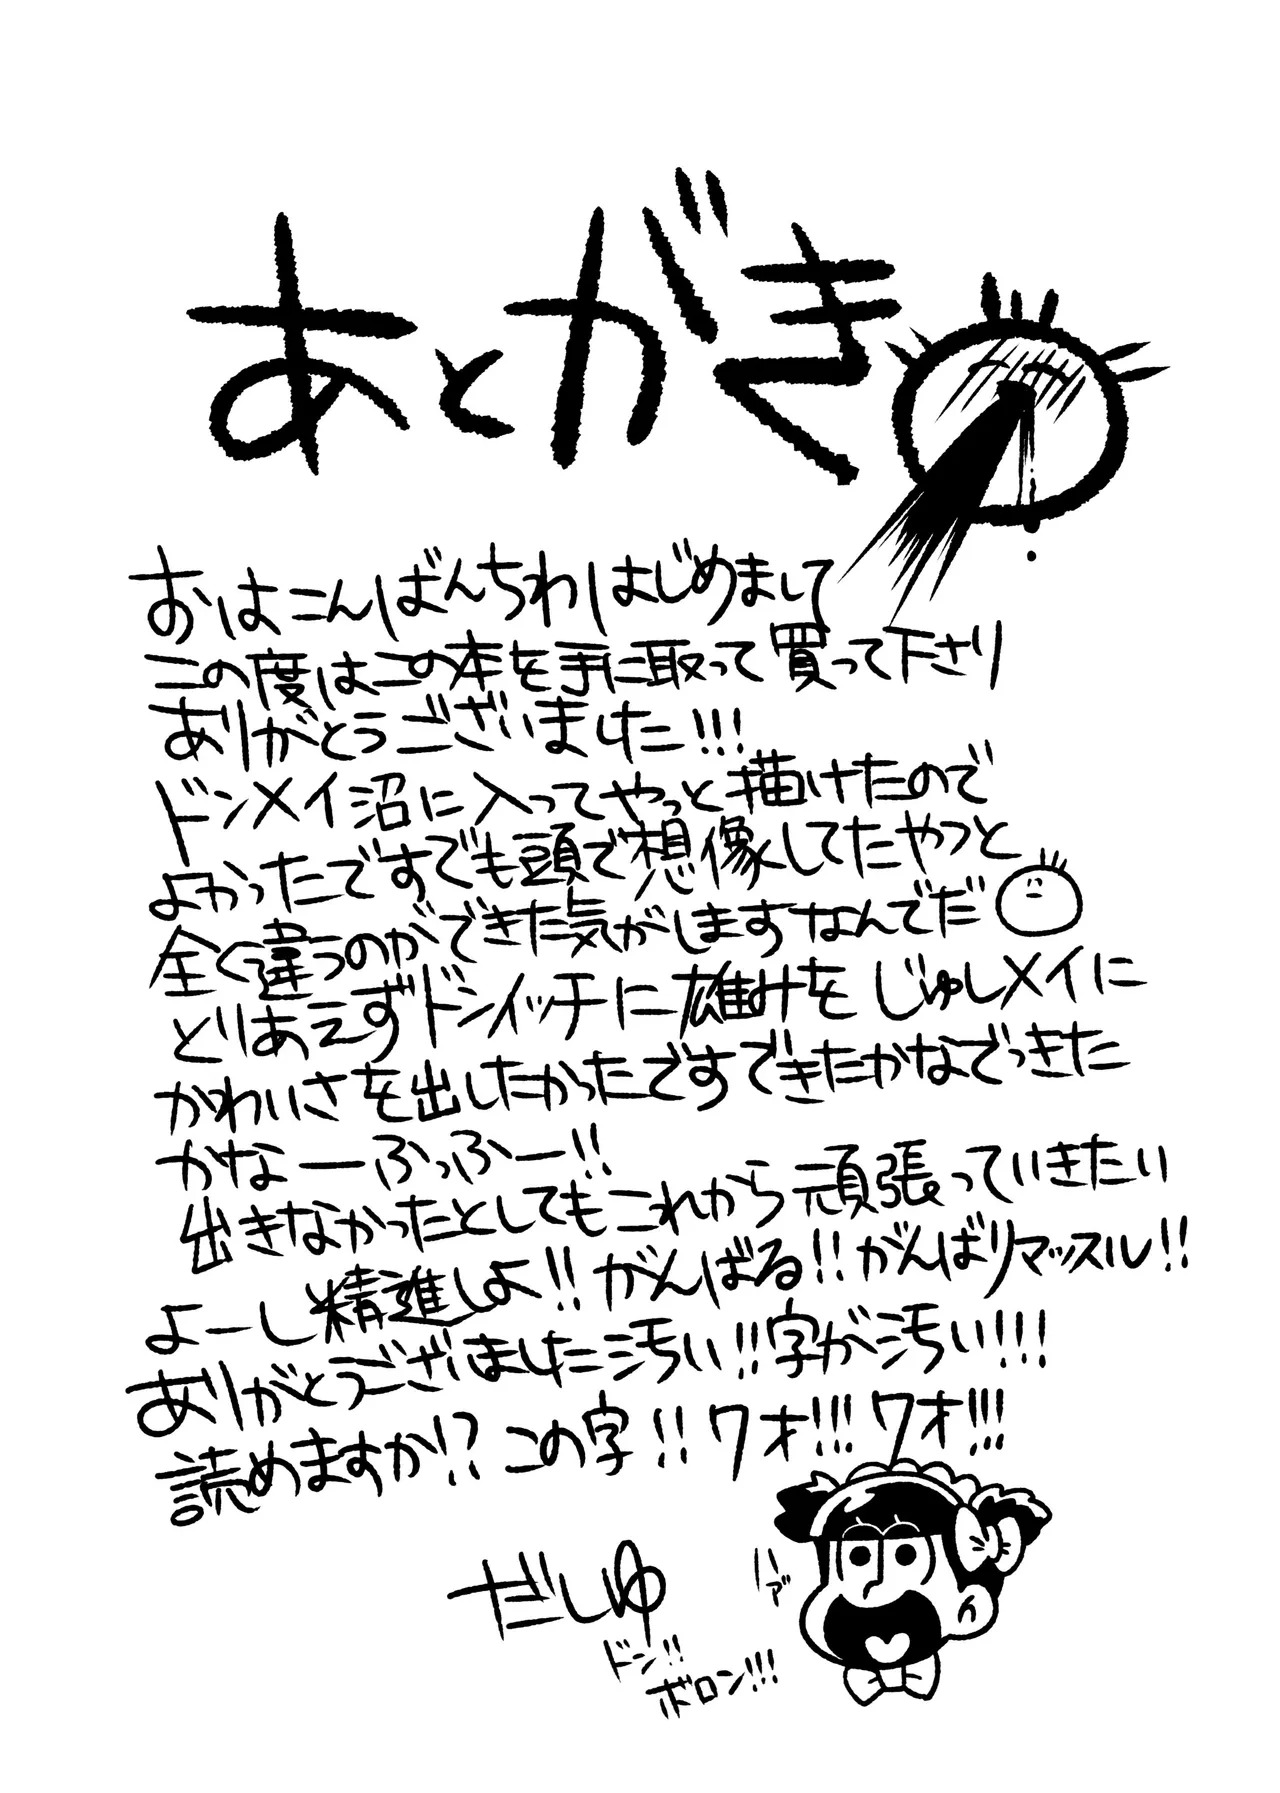 あとがき
おはこんばんちわはじめまして
この度はこの本を手に取って買って下さり
ありがとうございました!!!
ドンメイ沼に入ってやっと描けたので
よかったですでも頭で想像してたやつと
全く違うのができた気がしますなんでだ
とりあえずドンイッチに雄みをじゅしメイに
かわいさを出したかったですできたかなでっきた
かなーふっふー!!
出きなかったとしてもこれから頑張っていきたい
よーし精進しよ!!がんばる!!がんばりマッスル!!
ありがとうございました汚い!!字が汚い!!!
読めますか!?この字!!ワオ!!!ワオ!!!
だしゆ
ドン!!
ボロン!!!
ハァ